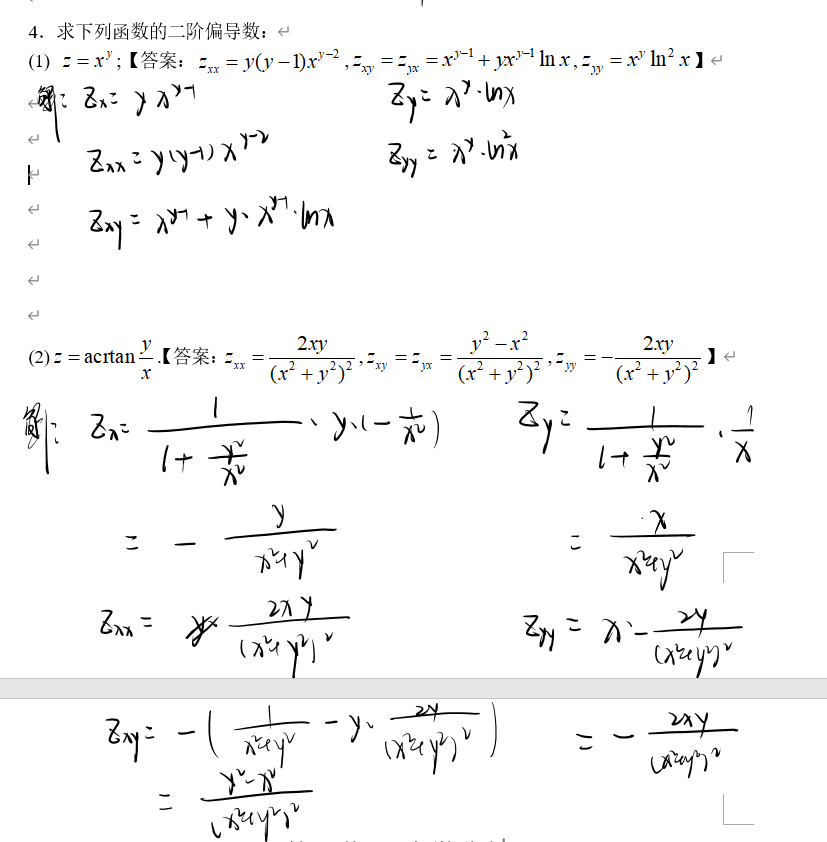 4．求下列函数的二阶偏导数：
(1) z = x^y ;【答案：z_xx = y(y−1)x^{y−2} , z_xy = z_yx = x^{y−1} + yx^{y−1} ln x , z_yy = x^y ln² x】
解：z_x = y x^{y-1}    z_y = x^y · lnx
z_xx = y(y-1) x^{y-2}    z_yy = x^y · ln²x
z_xy = x^{y-1} + y · x^{y-1} · lnx
(2) z = acrtan y/x .【答案：z_xx = 2xy/(x² + y²)² , z_xy = z_yx = (y² − x²)/(x² + y²)² , z_yy = − 2xy/(x² + y²)²】
解：z_x = 1/(1 + y²/x²) · y · (− 1/x²)    z_y = 1/(1 + y²/x²) · 1/x
= − y/(x²+y²)    = x/(x²+y²)
z_xx = 2xy/(x²+y²)²    z_yy = x · − 2y/(x²+y²)²
z_xy = − ( 1/(x²+y²) − y · 2y/(x²+y²)² )    = − 2xy/(x²+y²)²
= (y²−x²)/(x²+y²)²